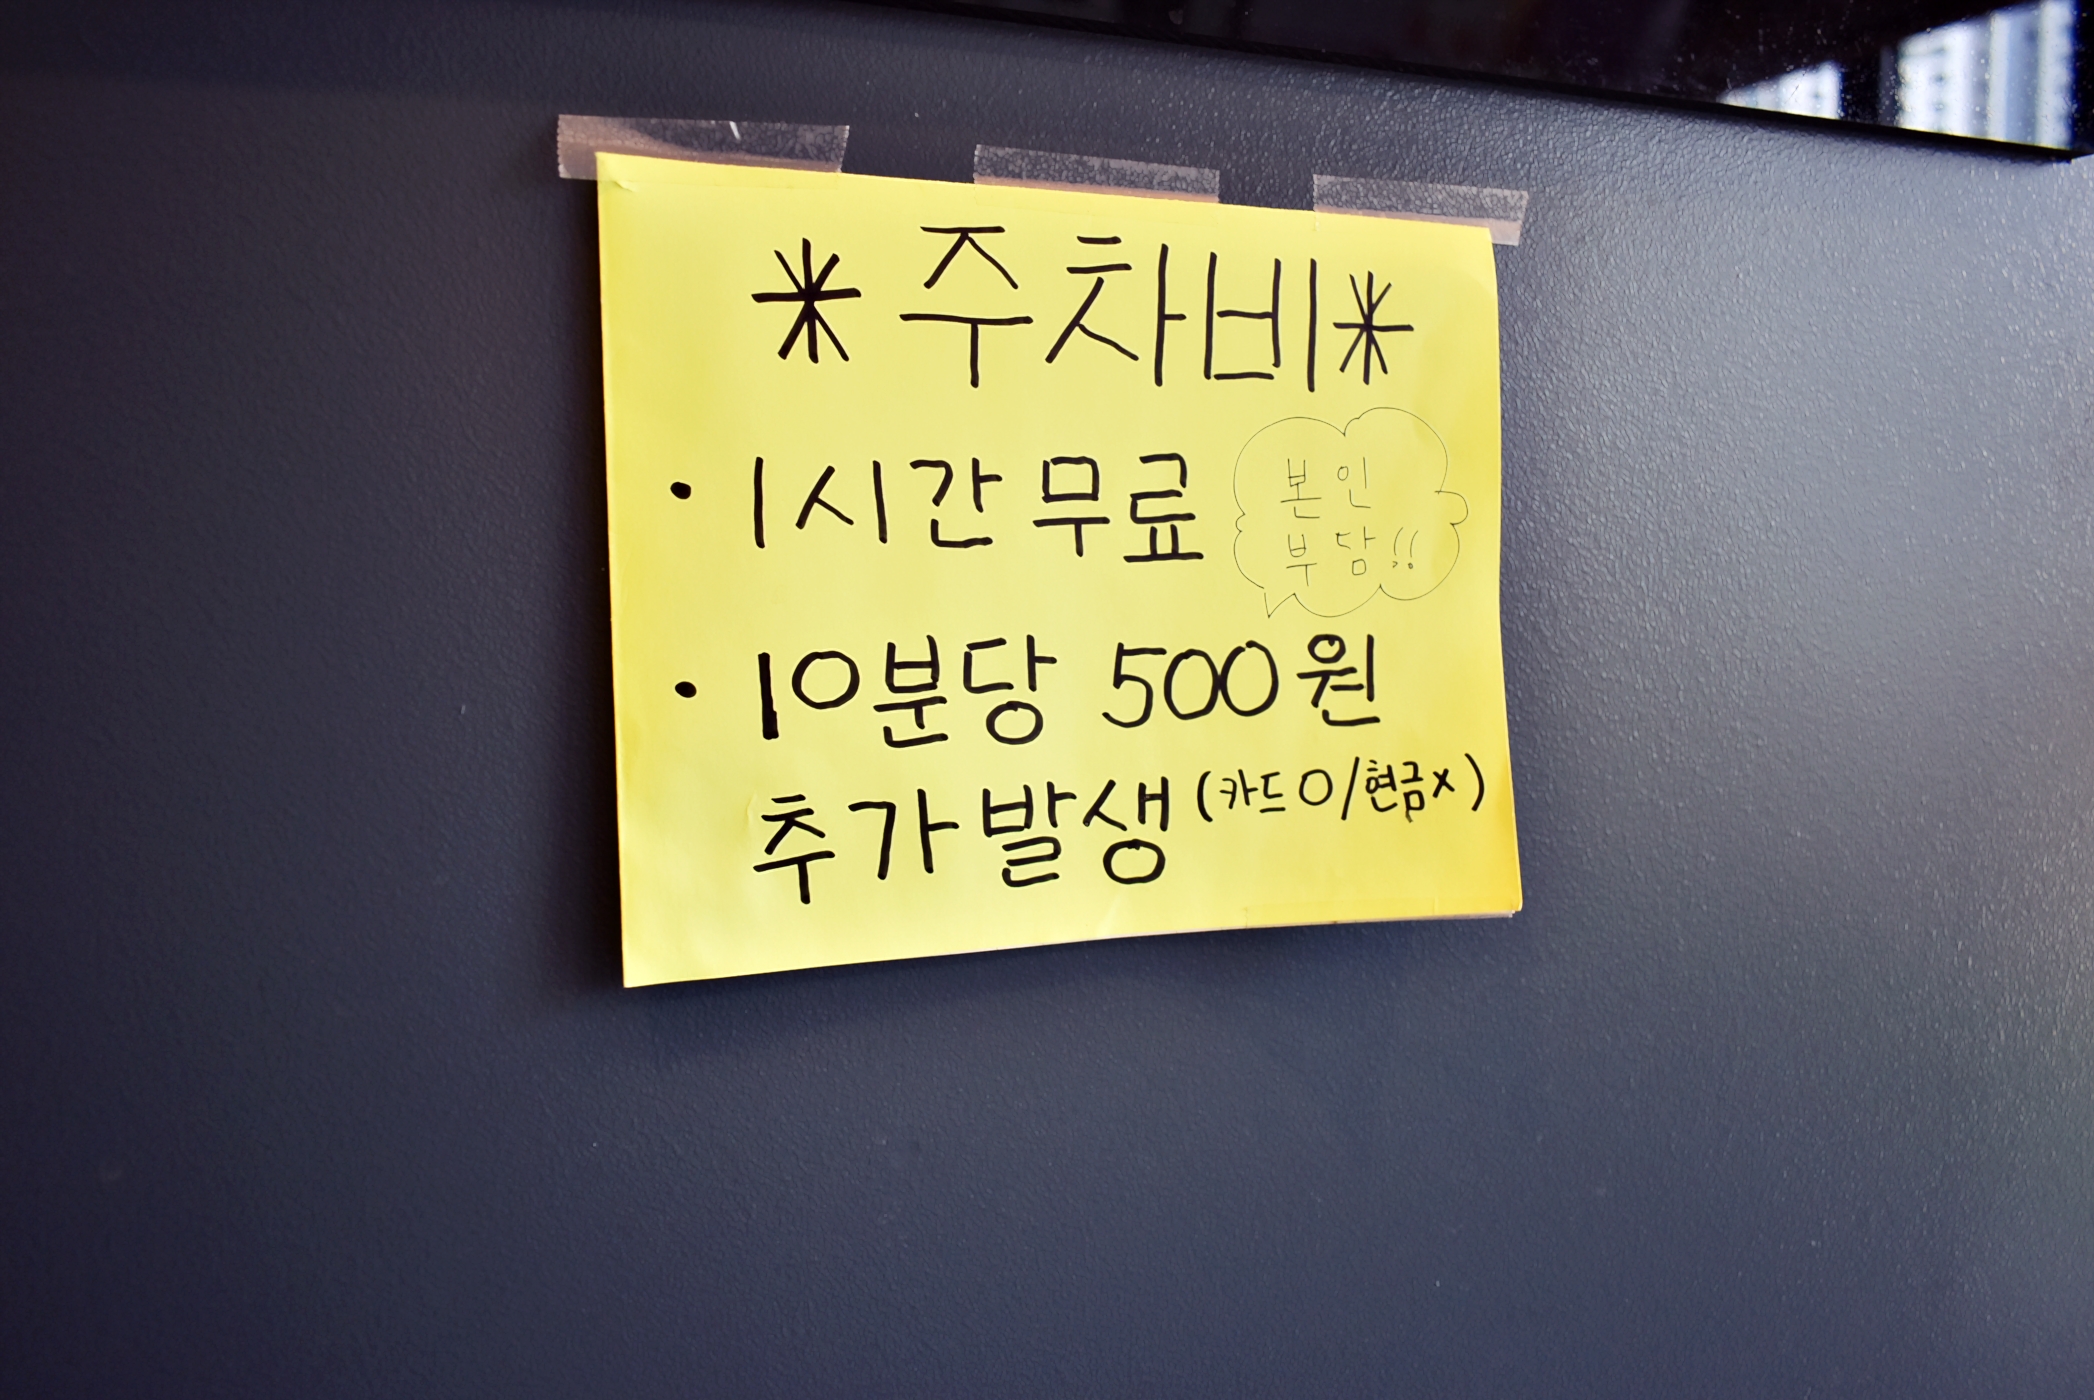 * 주차비 *
· 1시간 무료
본인
부담!!
· 10분당 500원
추가발생 (카드 O/현금 x)